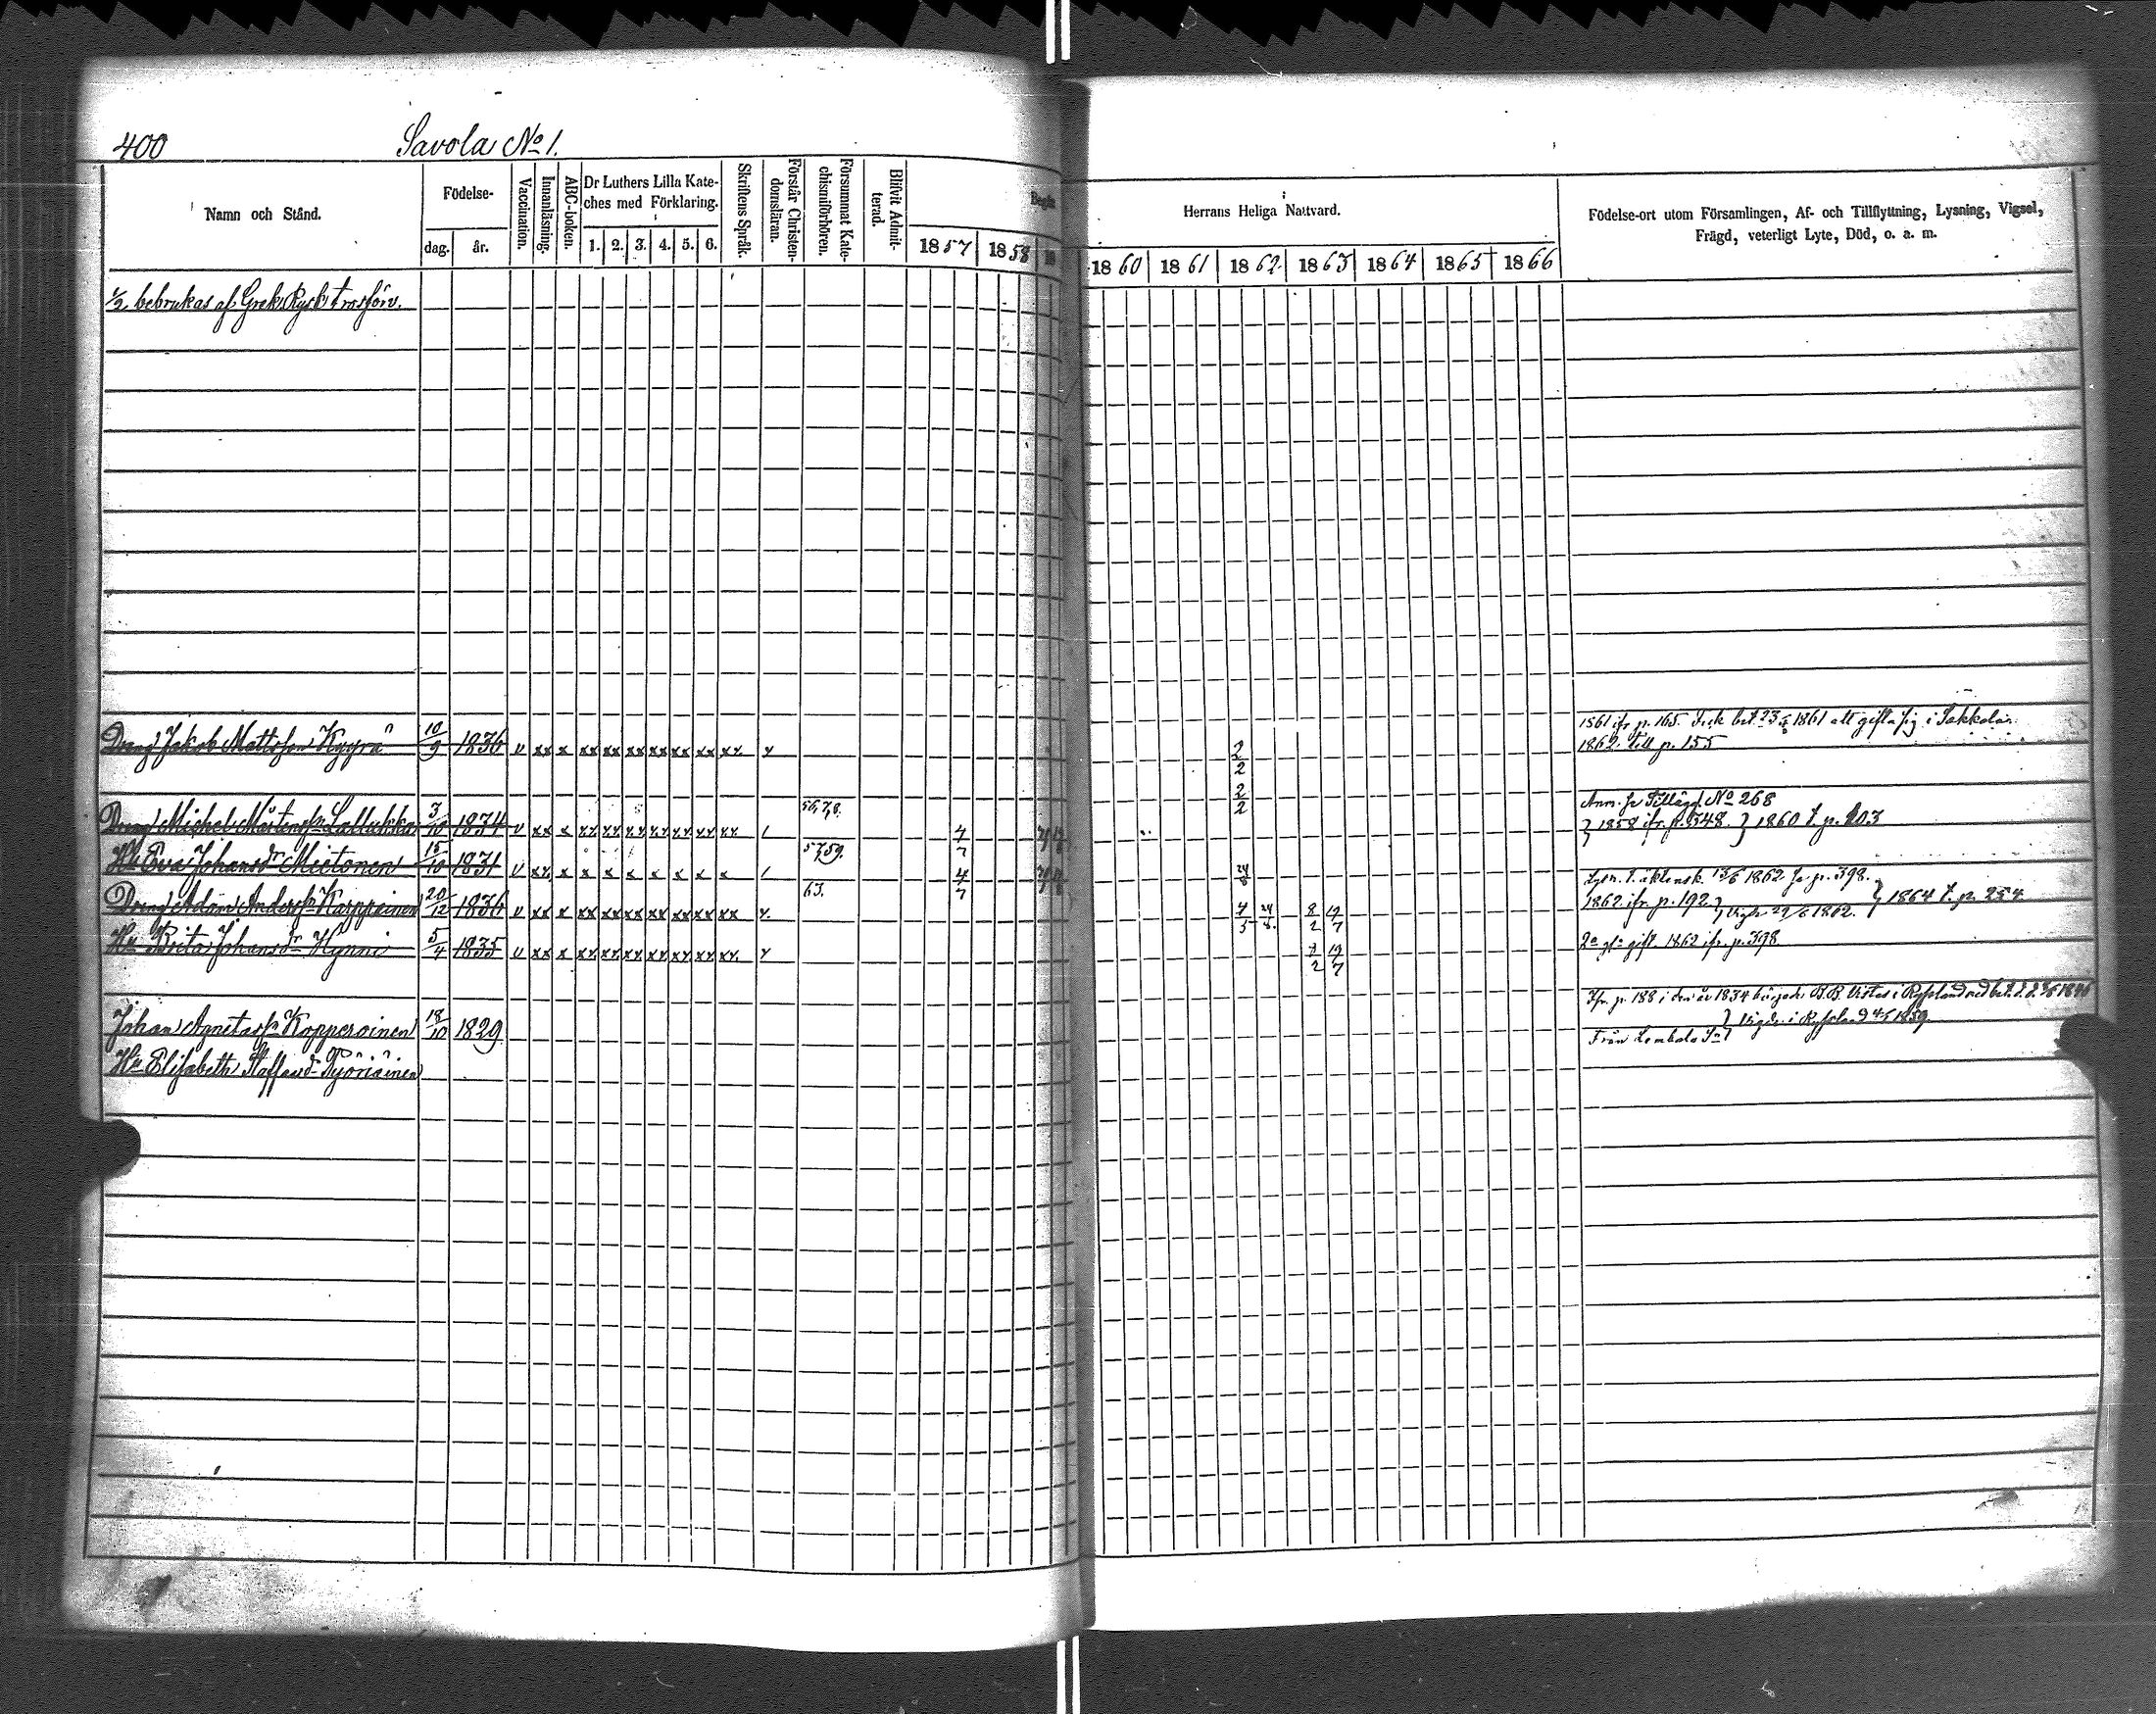 400 Savola No 1.
Namn och Stånd. Födelse- dag. år. Vaccination. Innanläsning. ABC-boken. Dr Luthers Lilla Kate-
ches med Förklaring. 1. 2. 3. 4. 5. 6. Skriftens Språk. Förstår Christen-
domsläran. Försummat Kate-
chismiförhören. Blifvit Admit-
terad. 1857 1858 18
Herrans Heliga Nattvard.
1860 1861 1862 1863 1864 1865 1866
Födelse-ort utom Församlingen, Af- och Tillflyttning, Lysning, Vigsel,
Frägd, veterligt Lyte, Död, o. a. m.
1/2 bebrukas af Grek. Rysk trosförv.
1861 ifr p. 165. Fick bet. 1861 att gifta sig i Sakkola
Dreng Jakob Mattsson Kyyrä 10/9 1836 v xx x xx xx xx xx xx xx xx x 2/2 1862. till p. 155
2/2 Anm. Tillägg No 268
Dreng Michel Mårtenss. Lallukka 3/10 1834 v xx x xx xx xx xx xx xx xx / 56,7,8. 4/7 1858 ifr. p. 548. } 1860 t. p. 203
Hu Eva Johansdr Mietonen 15/10 1831 v xx x x x x x x x x / 57,59. 4/7 24/8 Lysn. t. äktensk. 15/6 1862 p. 398.
Dreng Adam Anderss. Karppainen 20/12 1836 v xx x xx xx xx xx xx xx xx x 63. 4/5 24/8 8/2 19/7 1862 ifr. p. 192 } Vigde 29/6 1862. } 1864 t. p. 254
Hu Brita Johansdr Hynni 5/4 1835 v xx x xx xx xx xx xx xx xx x 8/2 19/7 2a gift 1862 ifr. p. 398
Ifr. p. 188 i den år 1834 började B.B. Vistas i Ryssland med bet.
Johan Agnetass. Kopperoinen 18/10 1829 Från Lembala } Vigde i Ryssland 1859.
Hu Elisabeth Staffansdr Pyöriäinen